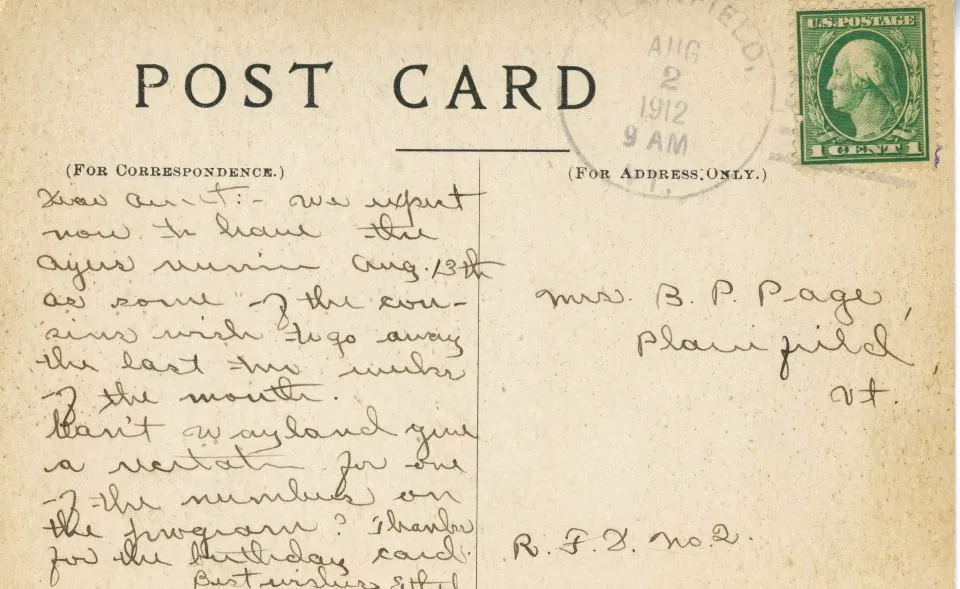 PLAINFIELD,
AUG
2
1912
9 AM
VT.
U.S. POSTAGE
1 CENT 1
POST CARD
(FOR CORRESPONDENCE.)
(FOR ADDRESS ONLY.)
Dear Aunt:- We expect
now to have the
Ayers reunion Aug. 13th
as some of the cou-
sins wish to go away
the last two weeks
of the month.
Can't Wayland give
a recitation for one
of the numbers on
the program? Thanks
for the birthday card.
Best wishes Ethel
Mrs. B. P. Page,
Plainfield
Vt.
R. F. D. No. 2.